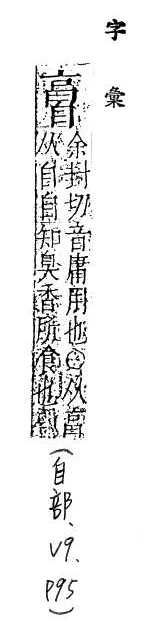 字彙
𦤝
余封切音庸用也○从亯
从自自知臭香所食也
(自部、V9、P95)